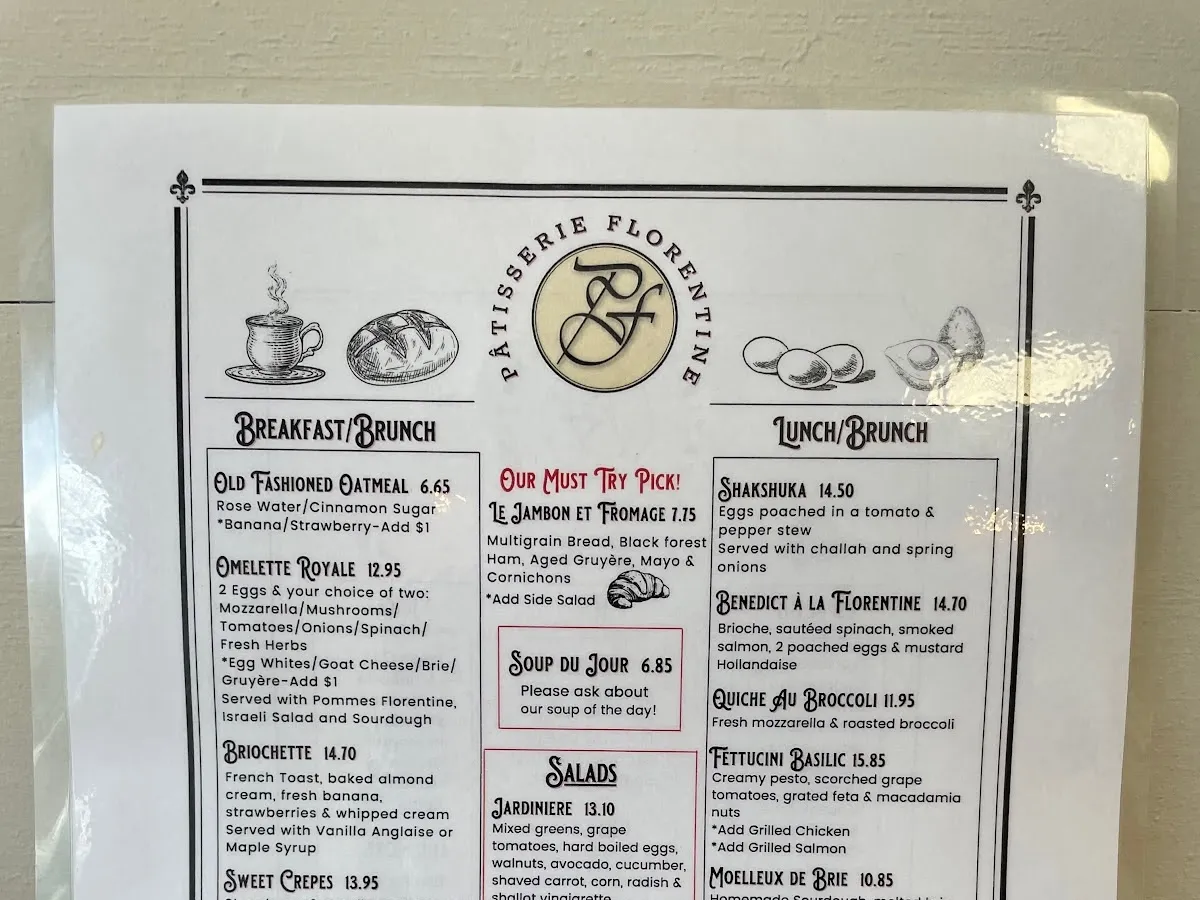 PÂTISSERIE FLORENTINE
PF
BREAKFAST/BRUNCH
OLD FASHIONED OATMEAL 6.65
Rose Water/Cinnamon Sugar
*Banana/Strawberry-Add $1
OMELETTE ROYALE 12.95
2 Eggs & your choice of two:
Mozzarella/Mushrooms/
Tomatoes/Onions/Spinach/
Fresh Herbs
*Egg Whites/Goat Cheese/Brie/
Gruyère-Add $1
Served with Pommes Florentine,
Israeli Salad and Sourdough
BRIOCHETTE 14.70
French Toast, baked almond
cream, fresh banana,
strawberries & whipped cream
Served with Vanilla Anglaise or
Maple Syrup
SWEET CREPES 13.95
OUR MUST TRY PICK!
LE JAMBON ET FROMAGE 7.75
Multigrain Bread, Black forest
Ham, Aged Gruyère, Mayo &
Cornichons
*Add Side Salad
SOUP DU JOUR 6.85
Please ask about
our soup of the day!
SALADS
JARDINIERE 13.10
Mixed greens, grape
tomatoes, hard boiled eggs,
walnuts, avocado, cucumber,
shaved carrot, corn, radish &
shallot vinaigrette
LUNCH/BRUNCH
SHAKSHUKA 14.50
Eggs poached in a tomato &
pepper stew
Served with challah and spring
onions
BENEDICT À LA FLORENTINE 14.70
Brioche, sautéed spinach, smoked
salmon, 2 poached eggs & mustard
Hollandaise
QUICHE AU BROCCOLI 11.95
Fresh mozzarella & roasted broccoli
FETTUCINI BASILIC 15.85
Creamy pesto, scorched grape
tomatoes, grated feta & macadamia
nuts
*Add Grilled Chicken
*Add Grilled Salmon
MOELLEUX DE BRIE 10.85
Homemade Sourdough, melted brie